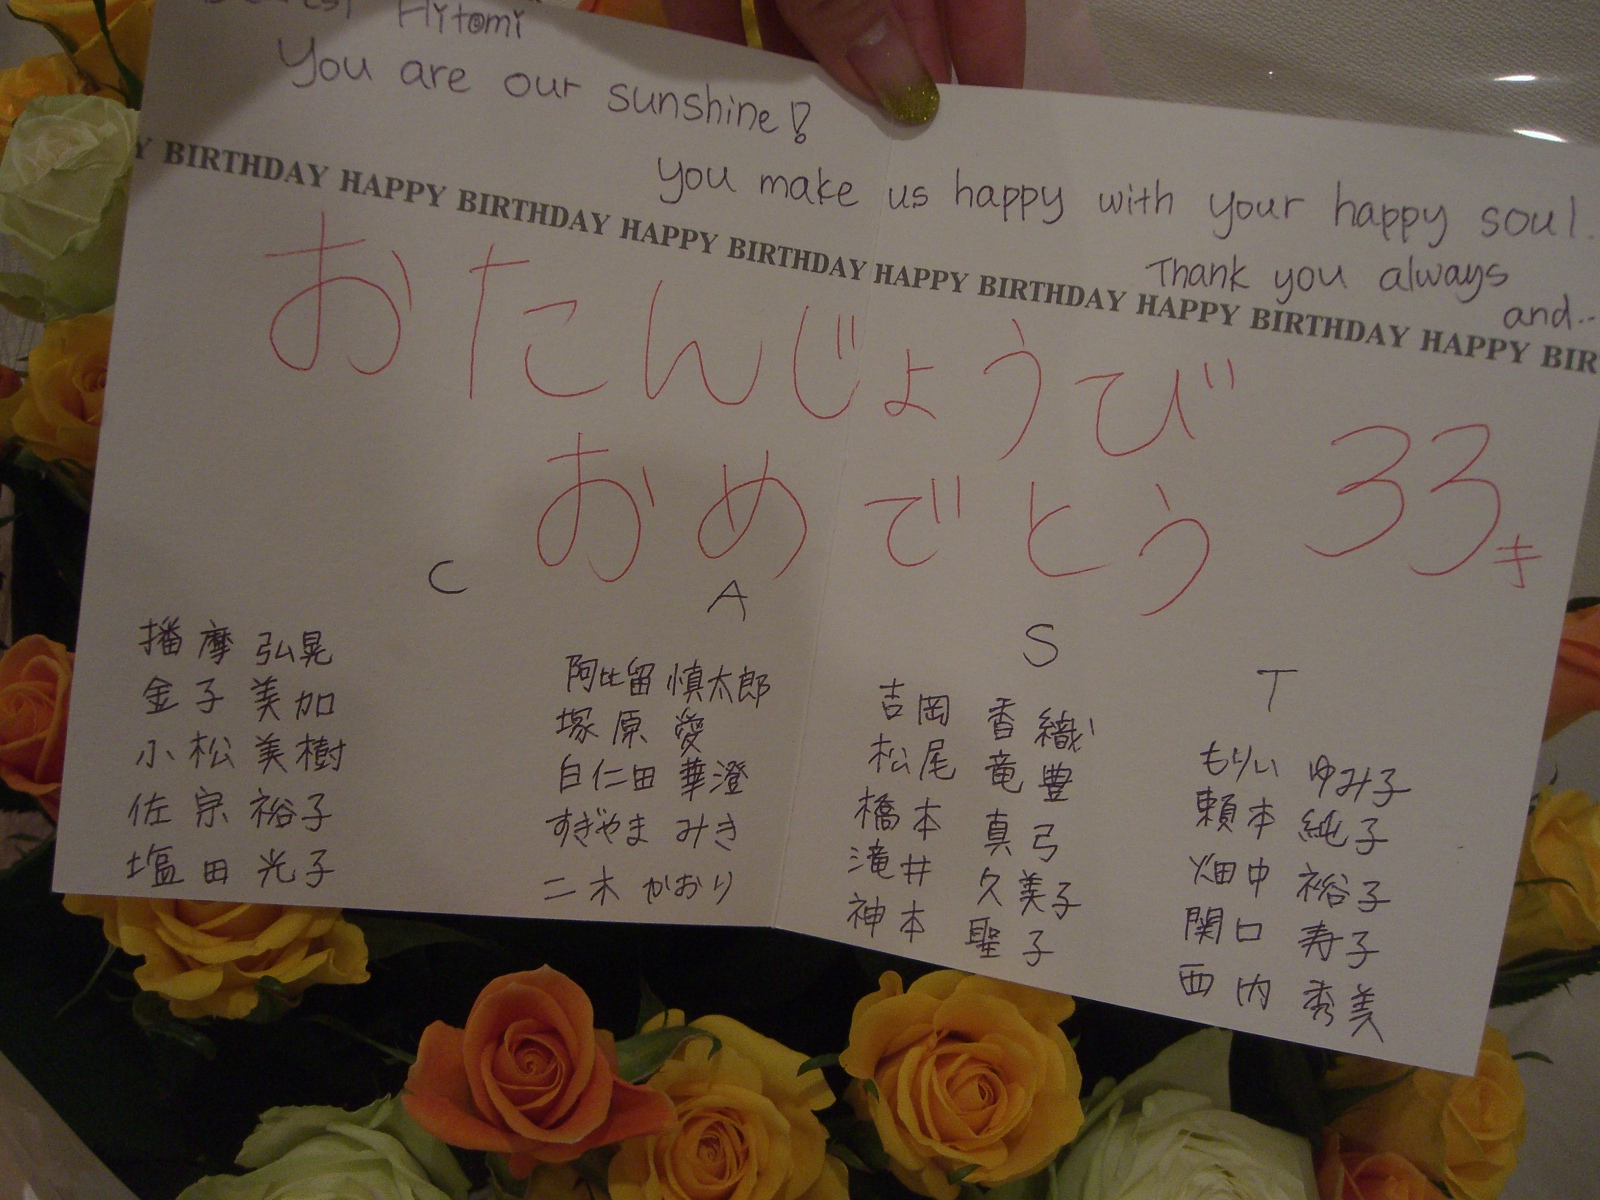 Dearest Hitomi
You are our sunshine!
you make us happy with your happy soul.
Thank you always
and...
Y BIRTHDAY HAPPY BIRTHDAY HAPPY BIRTHDAY HAPPY BIRTHDAY HAPPY BIRTHDAY HAPPY BIR
おたんじょうび
おめでとう 33才
C A S T
播摩 弘晃
金子 美加
小松 美樹
佐宗 裕子
塩田 光子
阿比留 慎太郎
塚原 愛
白仁田 華澄
すぎやま みき
二木 かおり
吉岡 香織
松尾 竜豊
橋本 真弓
滝井 久美子
神本 聖子
もりい ゆみ子
頼本 純子
畑中 裕子
関口 寿子
西内 秀美